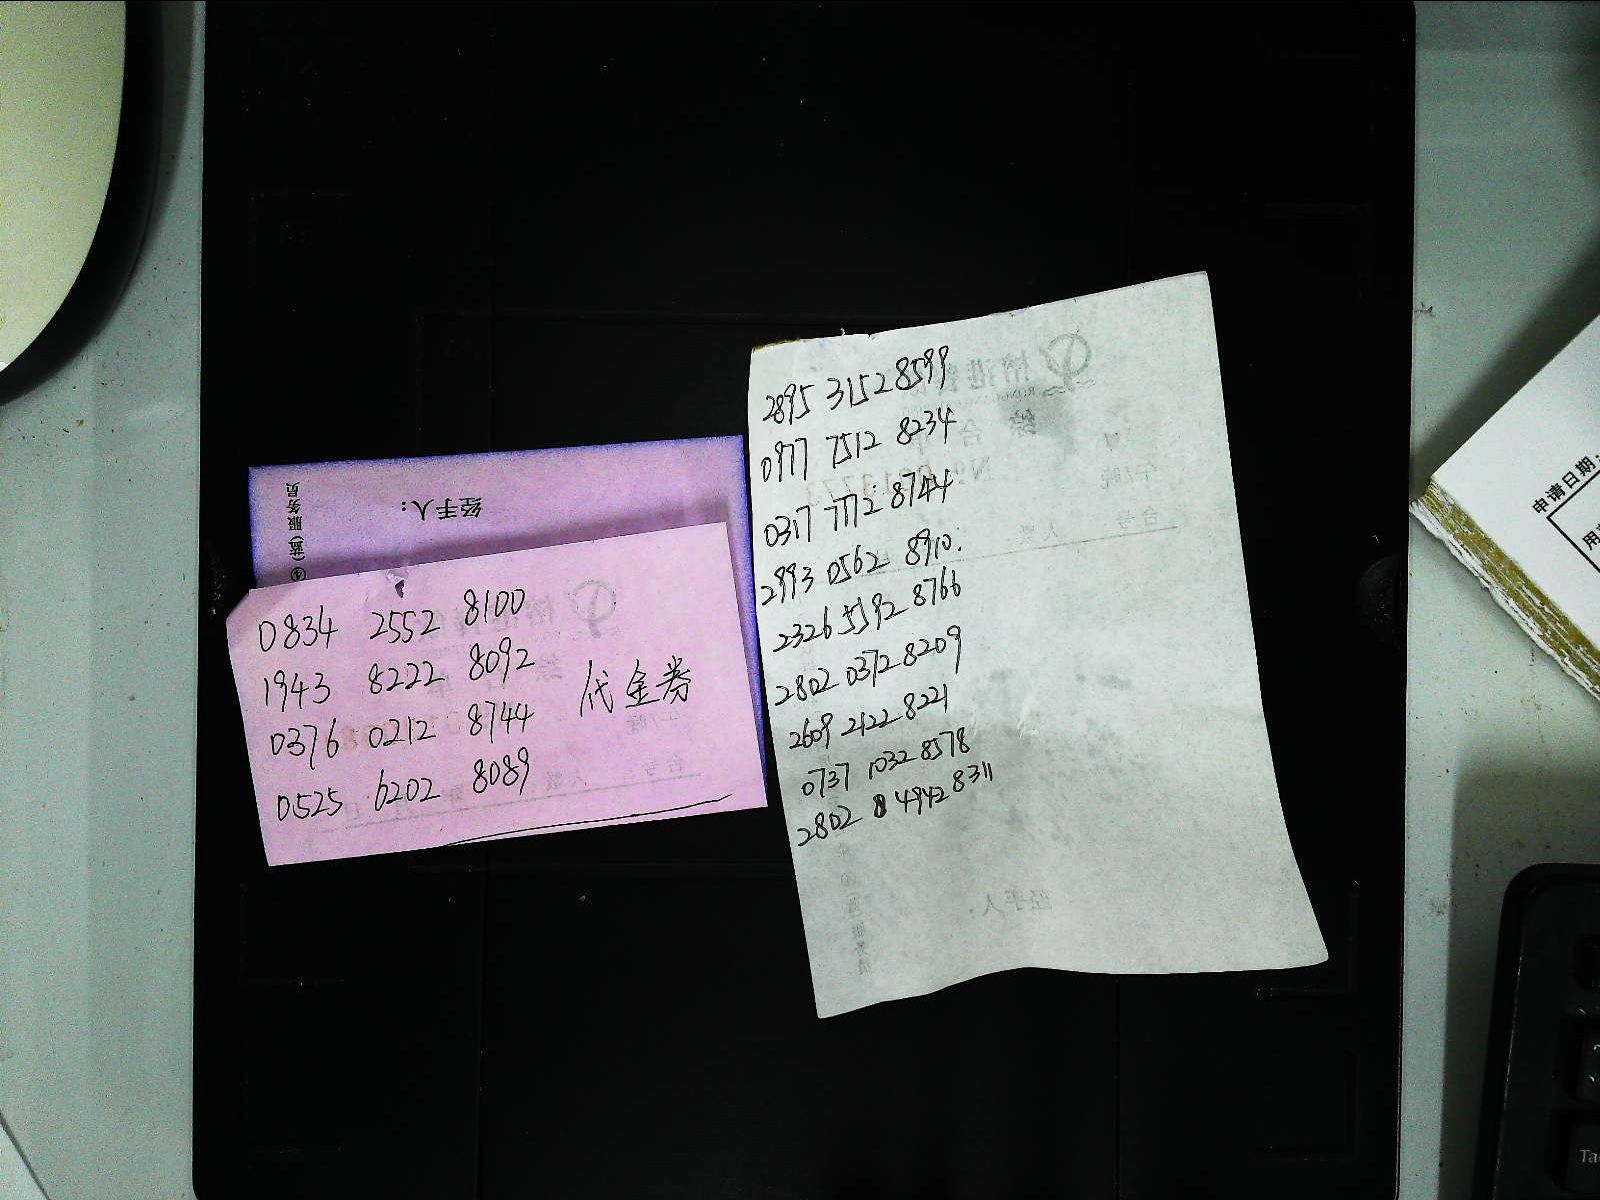 ④(蓝)服务员
经手人：
0834 2552 8100
1943 8222 8092
0376 0212 8744
0525 6202 8089
代金券
2895 3152 8599
0977 7512 8234
0317 7772 8744
2993 0562 8910.
2326 5592 8766
2802 0372 8209
2609 2122 8221
0737 1032 8578
2802 4942 8311
经手人：
申请日期：